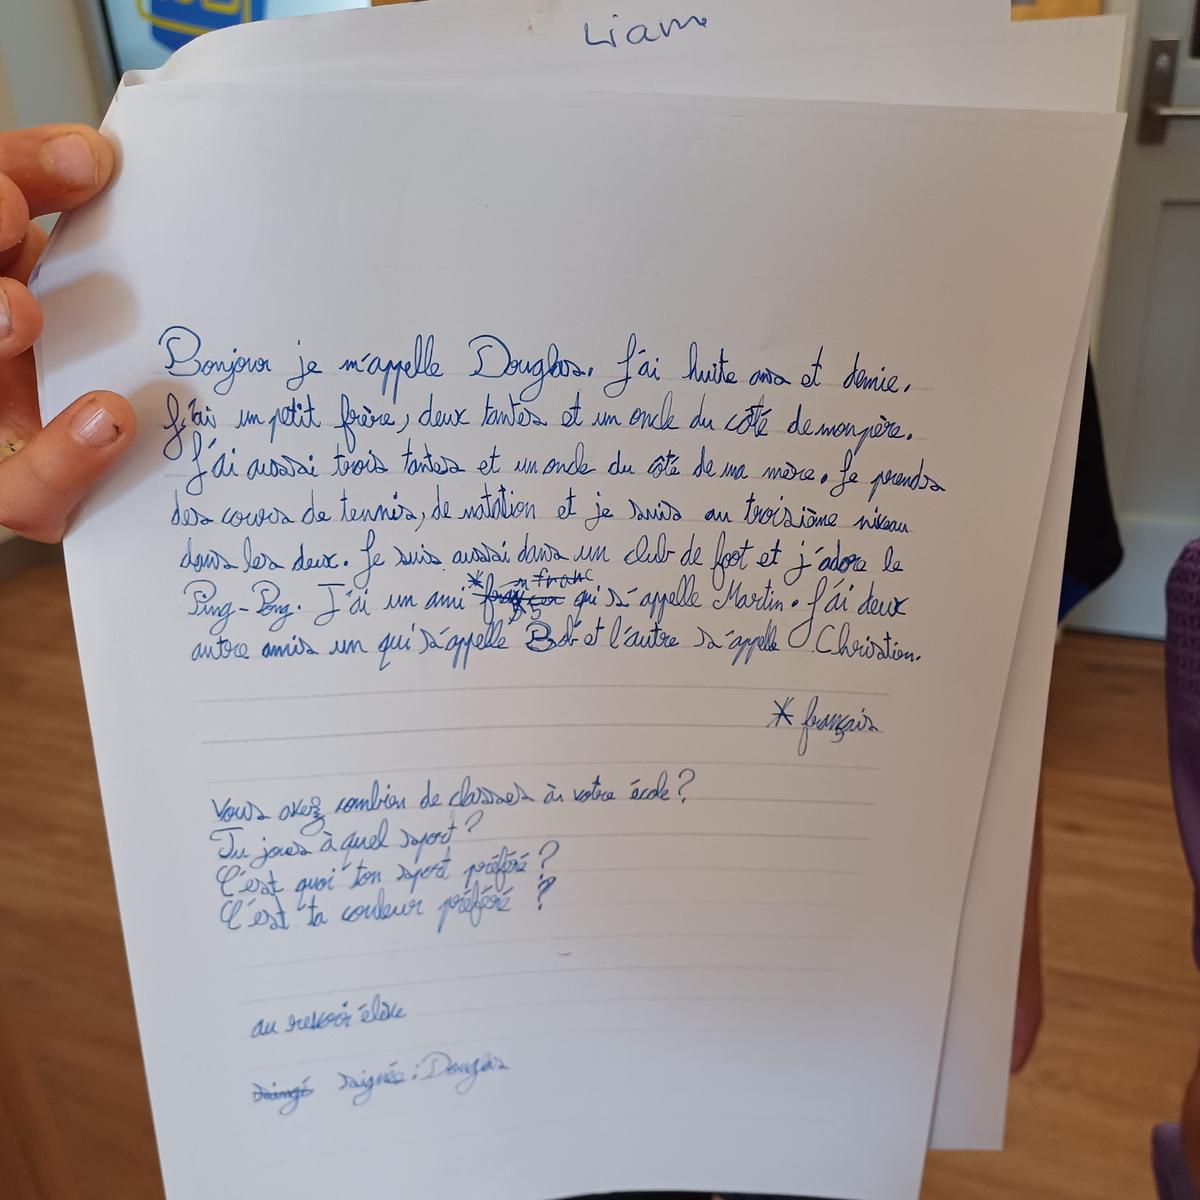 Liam
Bonjour je m'appelle Douglas. J'ai huite ans et demie.
J'ai un petit frère, deux tantes et un oncle du côté de mon père.
J'ai aussi trois tantes et un oncle du côté de ma mère. Je prends
des cours de tennis, de natation et je suis au troisième niveau
dans les deux. Je suis aussi dans un club de foot et j'adore le
Ping-Pong. J'ai un ami * qui s'appelle Martin. J'ai deux
autre amis un qui s'appelle et l'autre s'appelle Christian.
* français
Vous avez combien de classes à votre école?
Tu joues à quel sport?
C'est quoi ton sport préféré?
C'est ta couleur préféré?
au revoir élève
saignés: Douglas